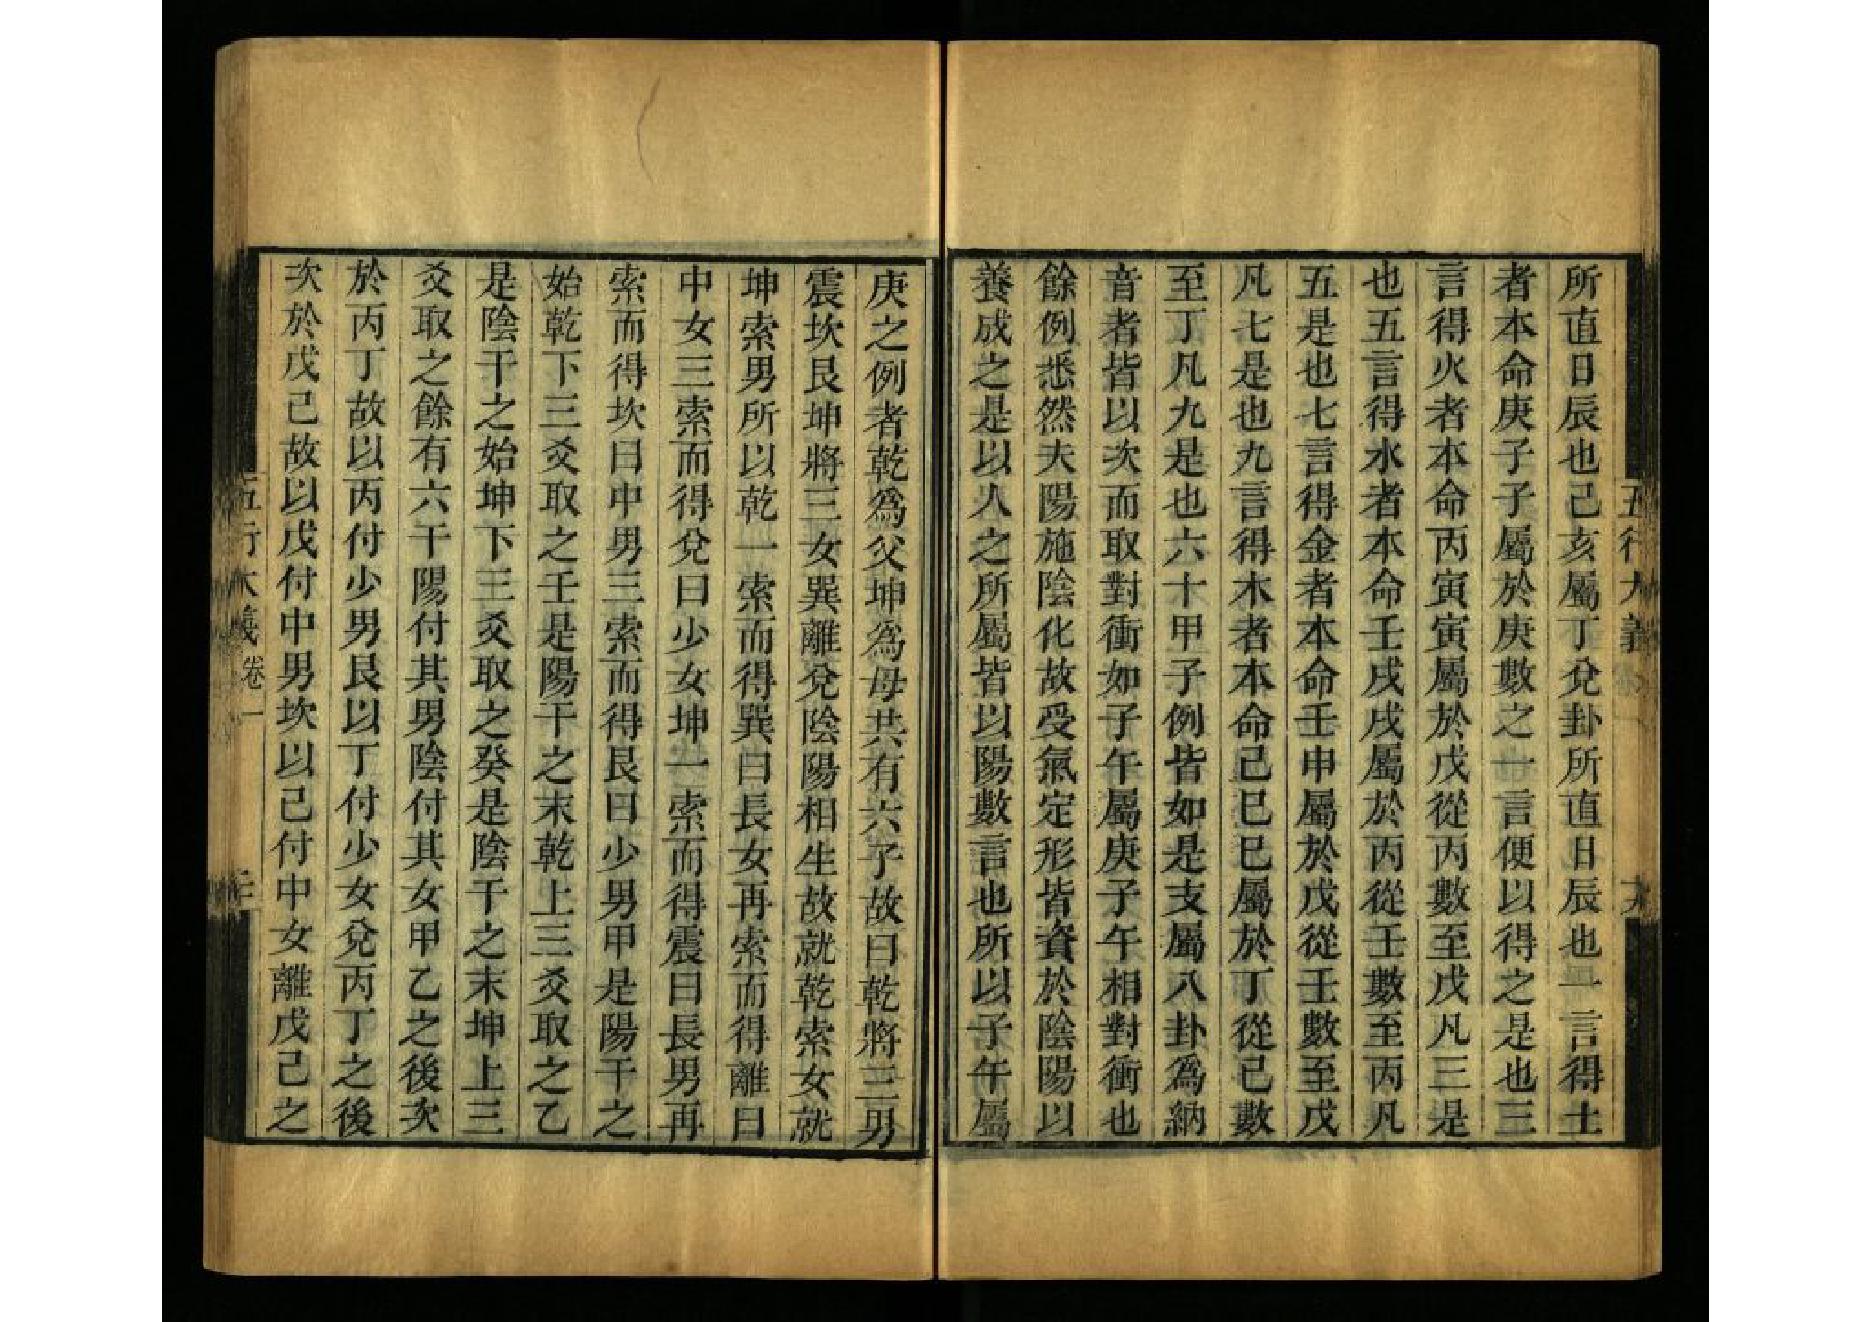 所直日辰也己亥屬丁兌卦所直日辰也一言得土
者本命庚子子屬於庚數之一言便以得之是也三
言得火者本命丙寅寅屬於戊從丙數至戊凡三是
也五言得水者本命壬戌戌屬於丙從壬數至丙凡
五是也七言得金者本命壬申申屬於戊從壬數至戊
凡七是也九言得木者本命己巳巳屬於丁從己數
至丁凡九是也六十甲子例皆如是支屬八卦爲納
音者皆以次而取對衝如子午屬庚子午相對衝也
餘例悉然夫陽施陰化故受氣定形皆資於陰陽以
養成之是以人之所屬皆以陽數言也所以子午屬
庚之例者乾爲父坤爲母共有六子故曰乾將三男
震坎艮坤將三女巽離兌陰陽相生故就乾索女就
坤索男所以乾一索而得巽曰長女再索而得離曰
中女三索而得兌曰少女坤一索而得震曰長男再
索而得坎曰中男三索而得艮曰少男甲是陽干之
始乾下三爻取之壬是陽干之末乾上三爻取之乙
是陰干之始坤下三爻取之癸是陰干之末坤上三
爻取之餘有六干陽付其男陰付其女甲乙之後次
於丙丁故以丙付少男艮以丁付少女兌丙丁之後
次於戊己故以戊付中男坎以己付中女離戊己之
五行大義卷一